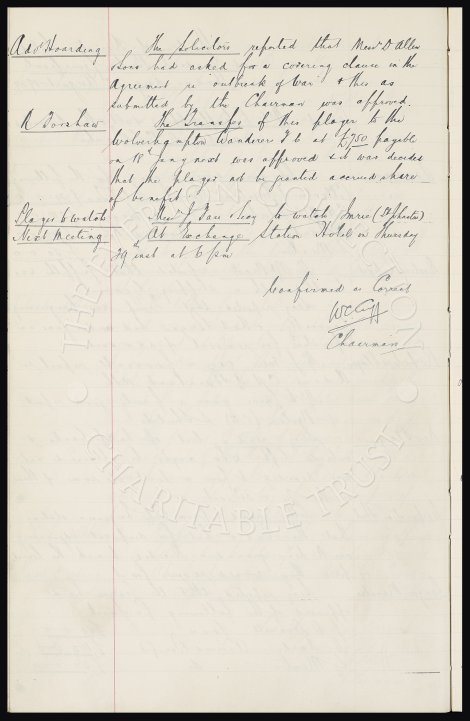 Adv Hoarding
The Solicitors reported that Messrs D Allen
& Sons had asked for a covering clause in the
Agreement re "outbreak of War" & this as
submitted by the Chairman was approved.
R Forshaw
The Transfer of this player to the
Wolverhampton Wanderers F C at £750 payable
on 18th Jany next was approved & it was decided
that the player not be granted accrued share
of benefit
Player to watch
Messrs to watch Imrie (St Johnstone)
Next Meeting
At Exchange Station Hotel on Thursday
29th inst at 6 pm
Confirmed as Correct
W C Cuff
Chairman
THE EVERTON COLLECTION
CHARITABLE TRUST